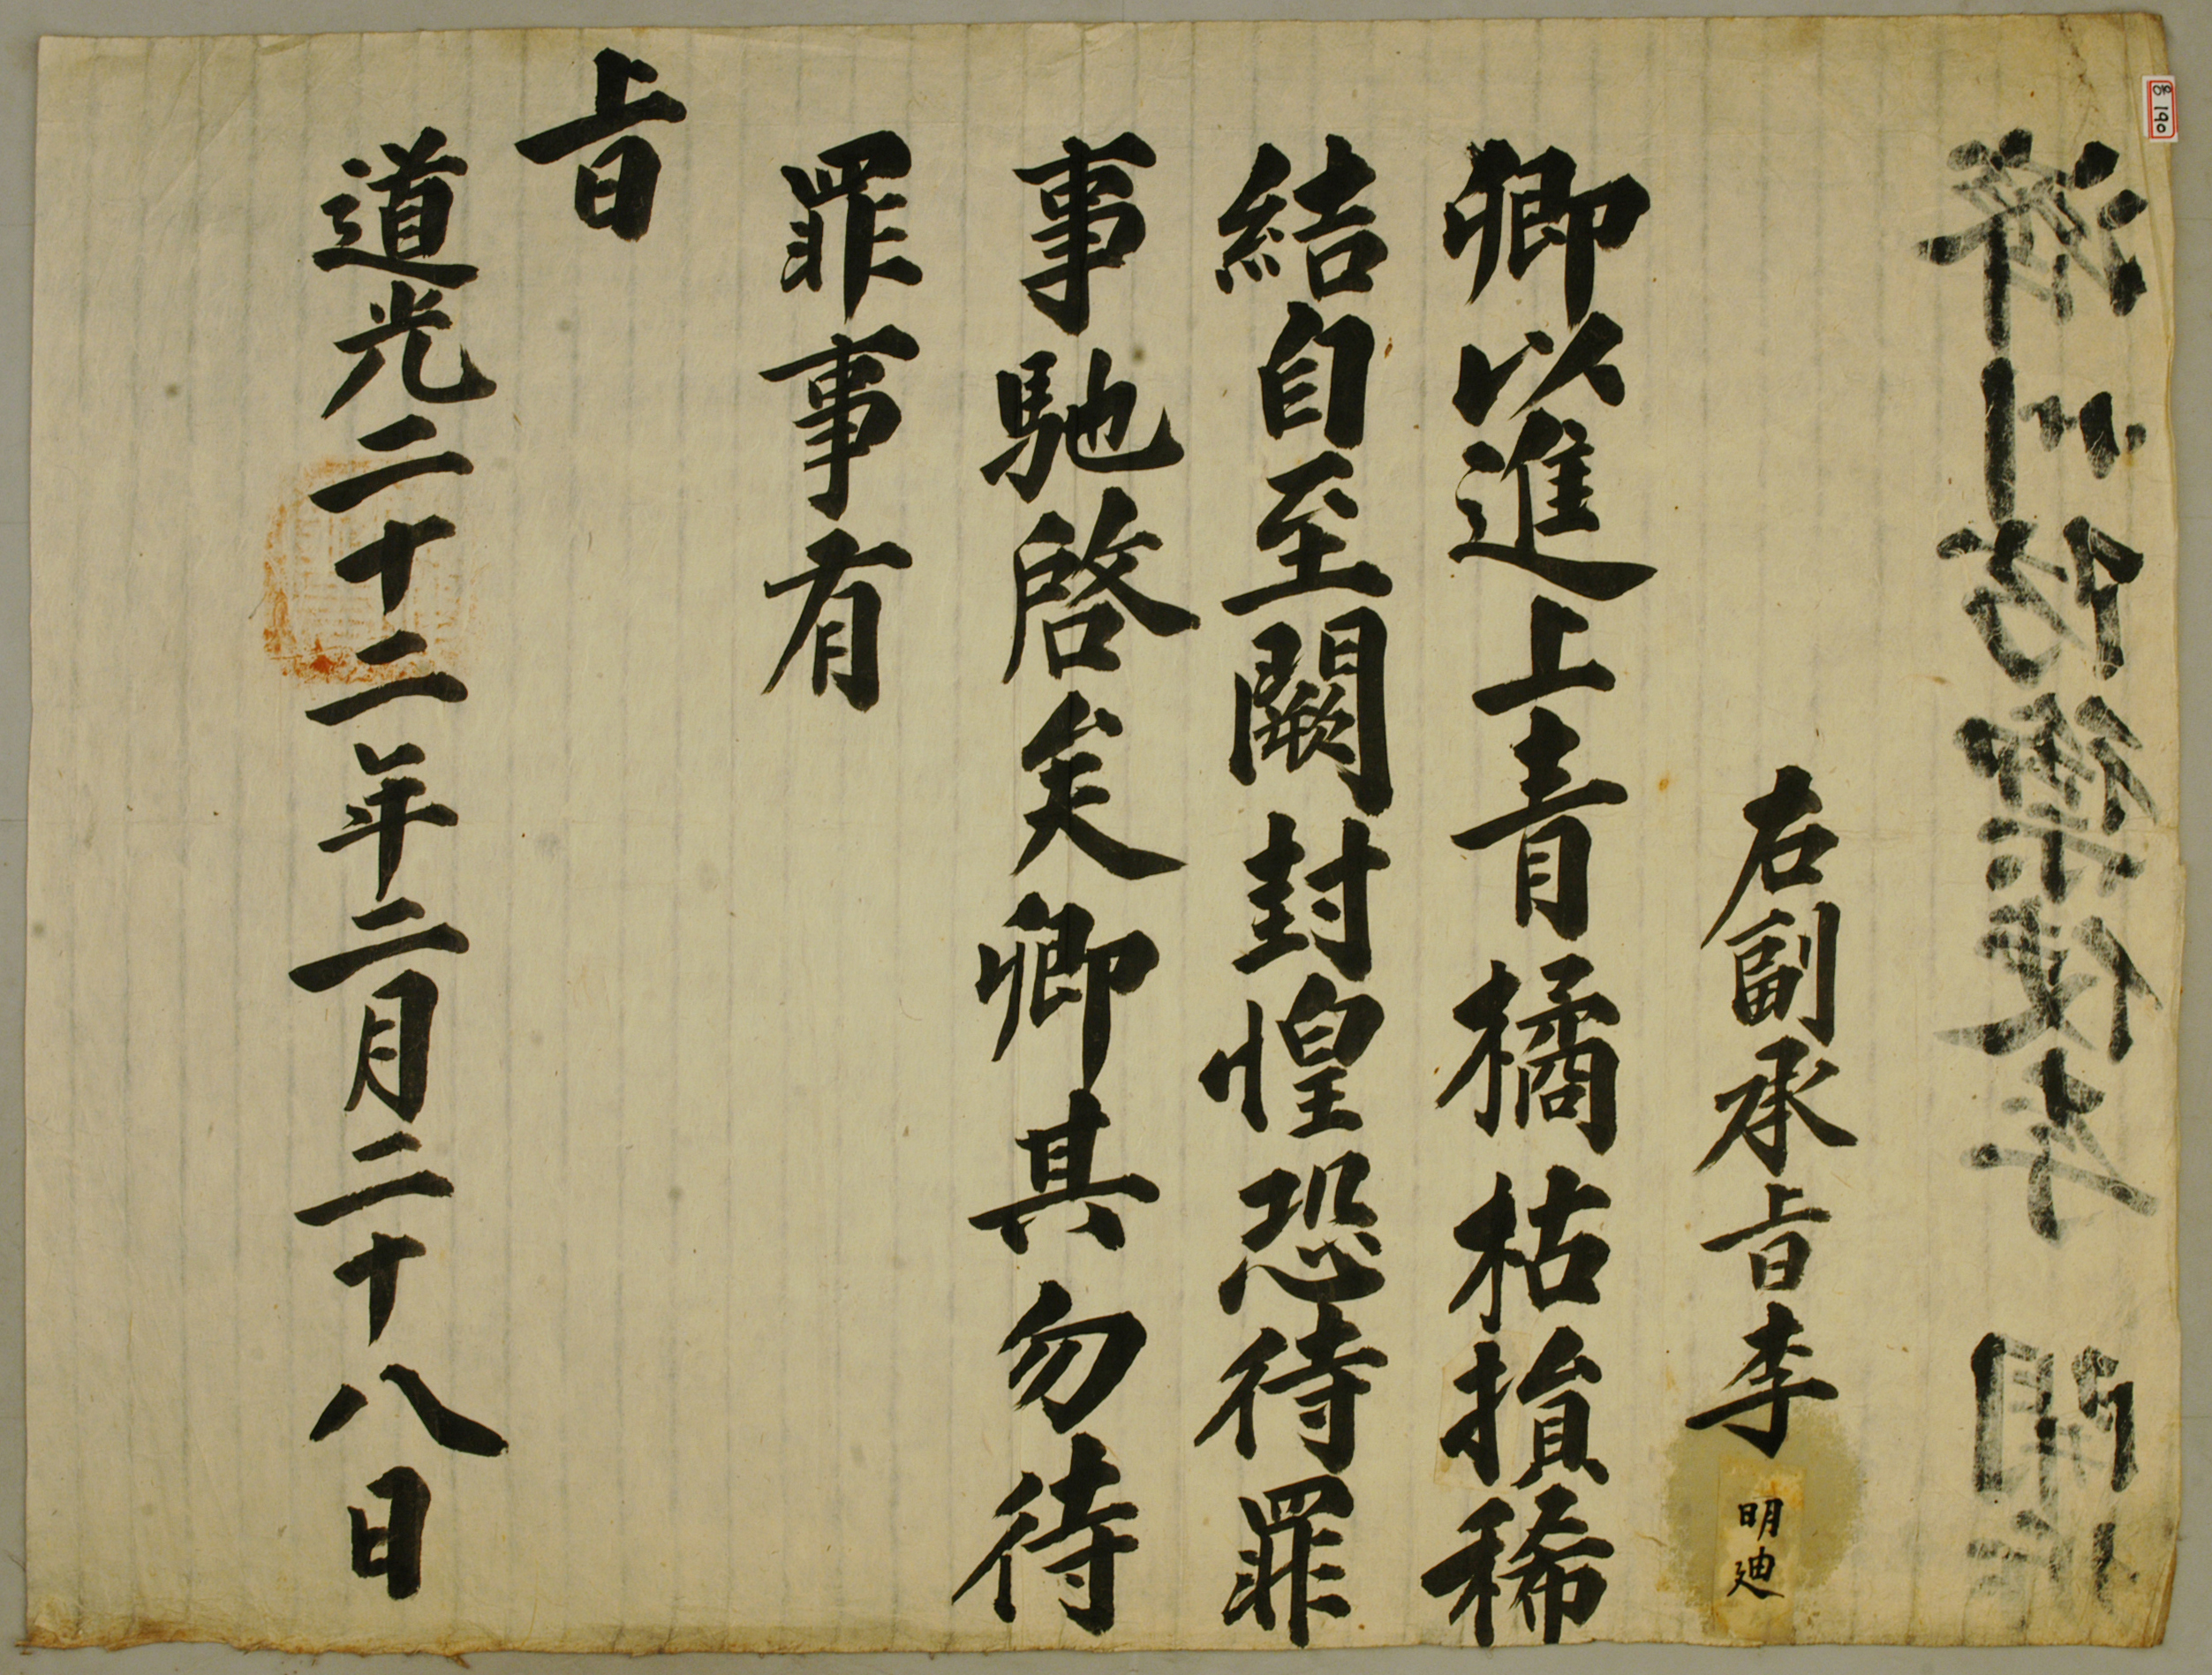 190
濟州防禦使李 開拆
右副承旨李 明迪
卿以進上青橘枯損稀
結自至闕封惶恐待罪
事馳啓矣卿其勿待
罪事有
旨
道光二十二年二月二十八日